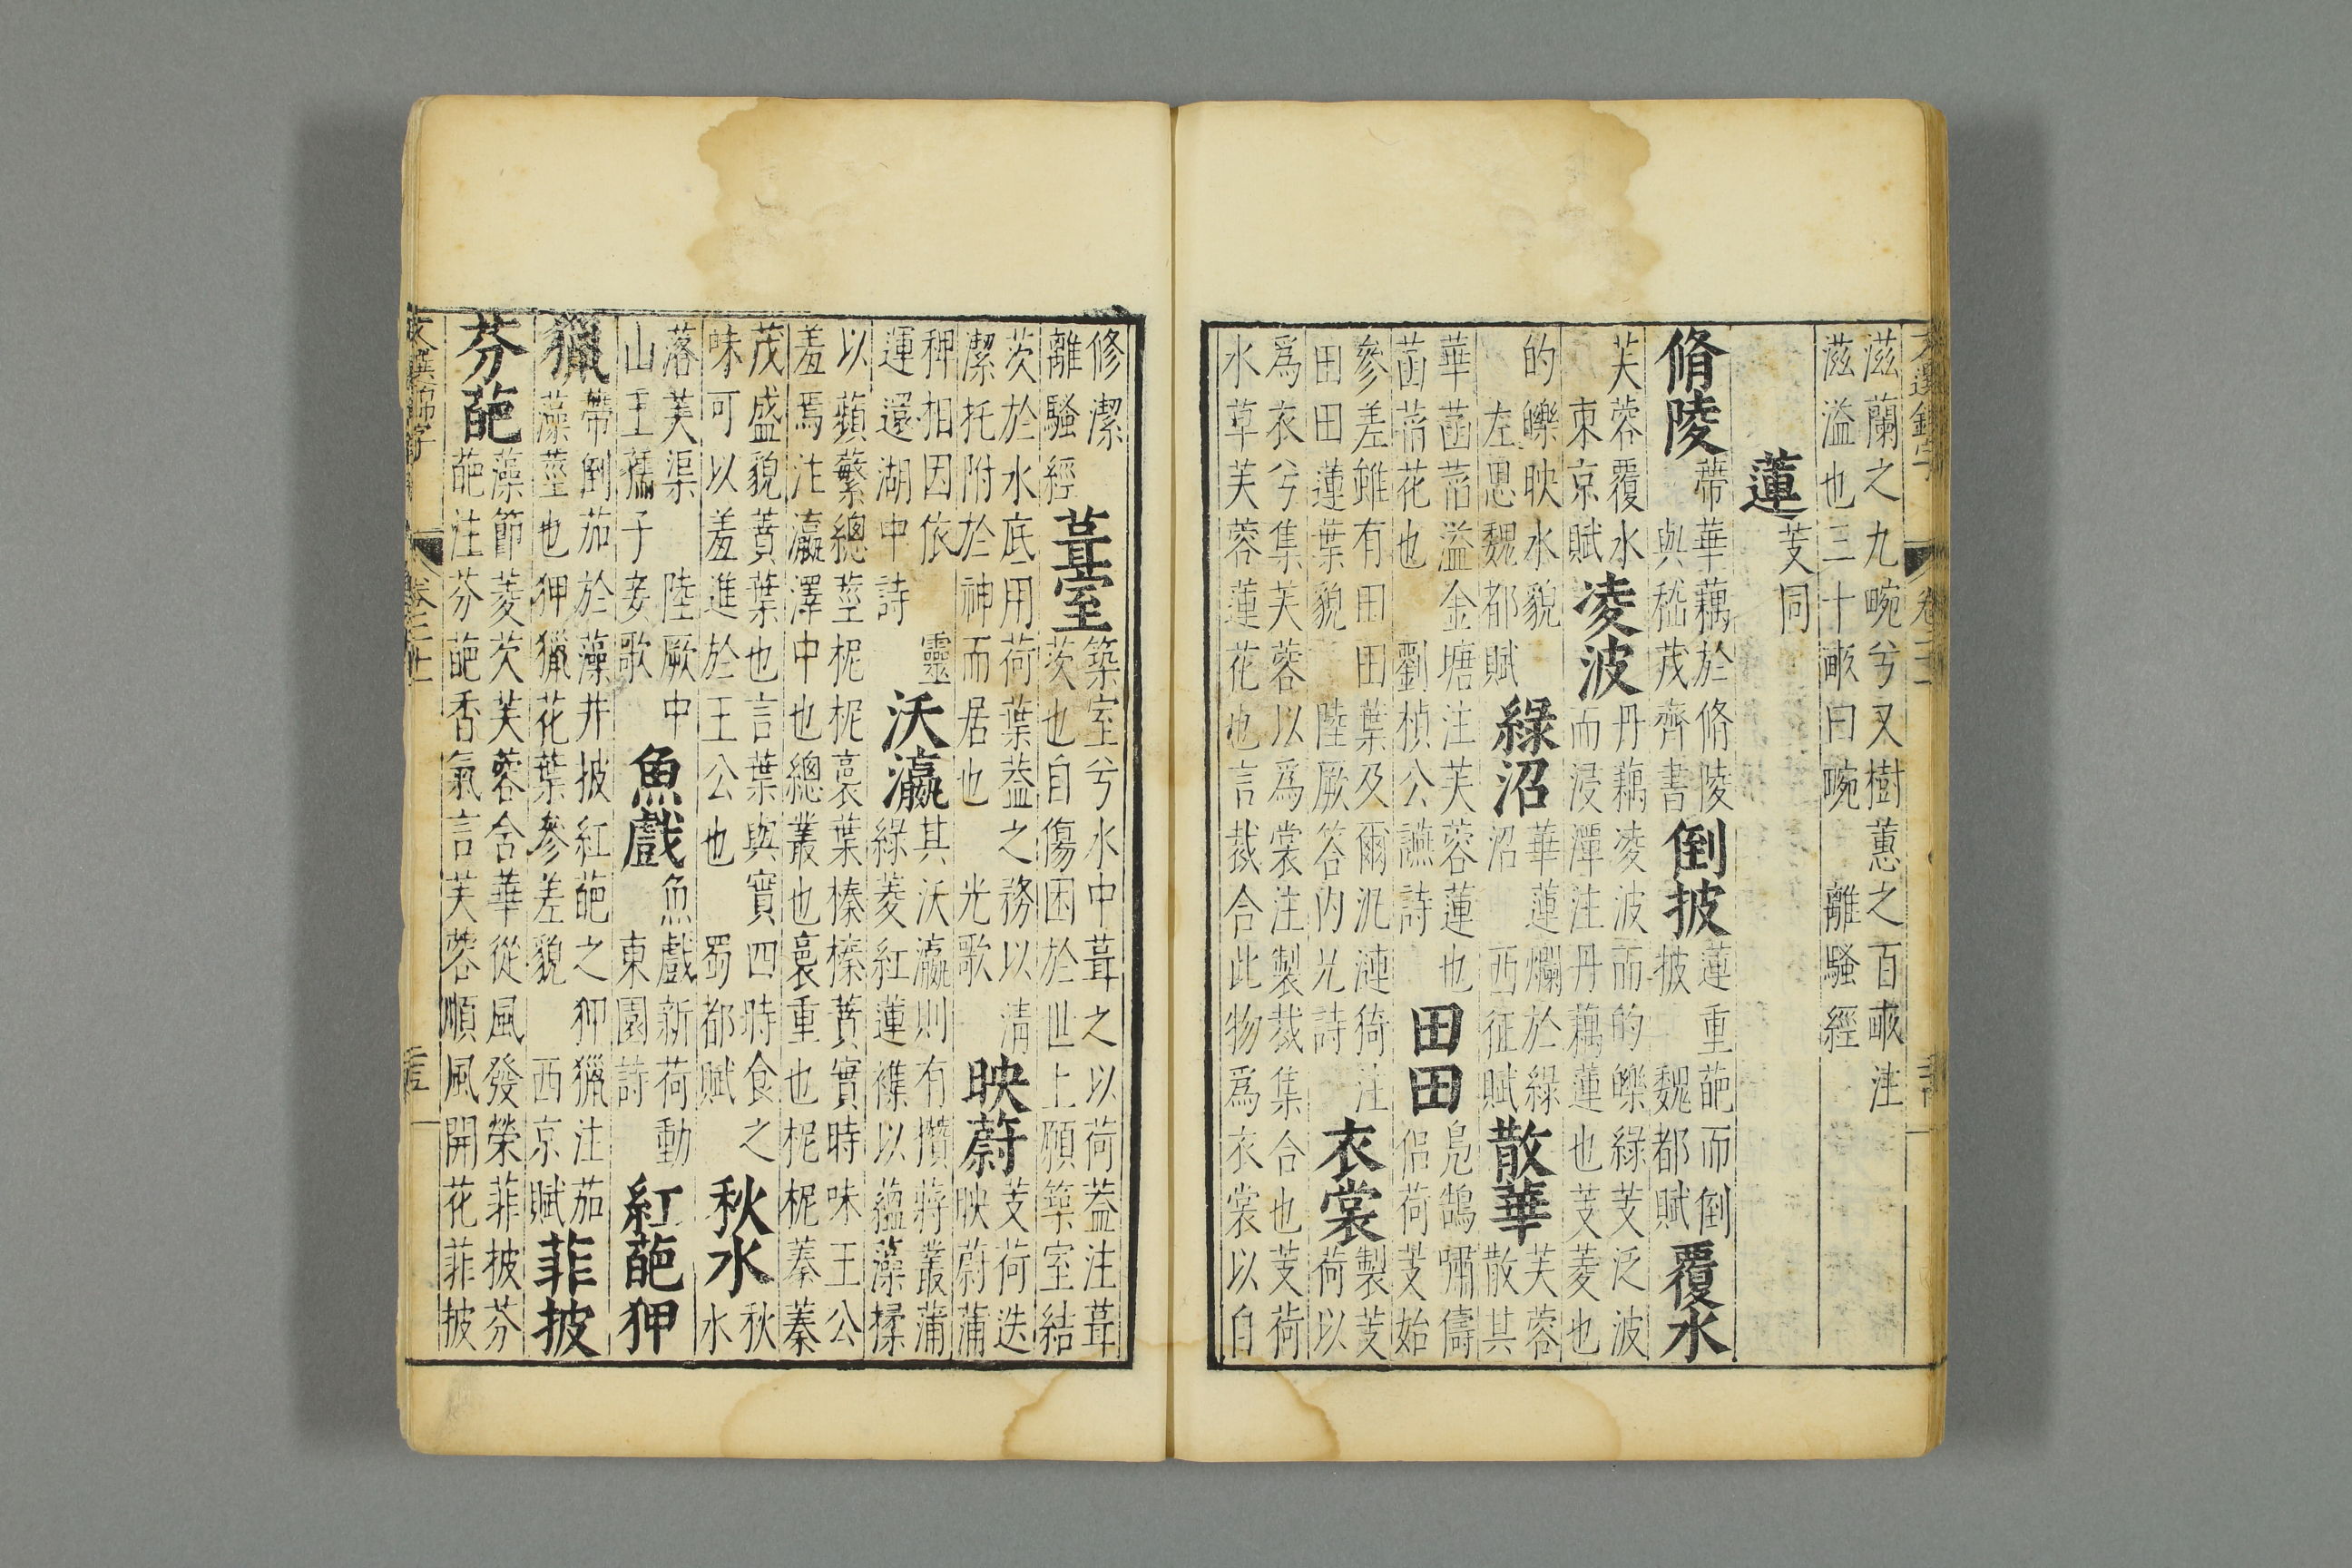 滋蘭之九畹兮又樹蕙之百畞注
滋溢也三十畞曰畹 離騷經
蓮
芰同
脩陵
蔕華藕於脩陵
與嵇茂齊書
倒披
蓮重葩而倒
披 魏都賦
覆水
芙蓉覆水
東京賦
凌波
丹藕凌波而的皪綠芰泛波
而浸潭注丹藕蓮也芰菱也
的皪映水貌
左思魏都賦
綠沼
華蓮爛於綠
沼 西征賦
散華
芙蓉
散其
華菡萏溢金塘注芙蓉蓮也
菡萏花也 劉楨公讌詩
田田
鳧鵠嘯儔
侶荷芰始
參差雖有田田葉及爾泛漣猗注
田田蓮葉貌 陸厥答内兄詩
衣裳
製芰
荷以
爲衣兮集芙蓉以爲裳注製裁集合也芰荷
水草芙蓉蓮花也言裁合此物爲衣裳以自
修潔
離騷經
葺室
築室兮水中葺之以荷蓋注葺
茨也自傷困於世上願築室結
茨於水底用荷葉蓋之務以清
潔托附於神而居也 光歌
映蔚
芰荷迭
映蔚蒲
稗相因依 靈
運還湖中詩
沃瀛
其沃瀛則有攢蔣叢蒲
綠菱紅蓮襍以蘊藻揉
以蘋蘩總莖柅柅裛葉榛榛蕡實時味王公
羞焉注瀛澤中也總叢也裛重也柅柅蓁蓁
茂盛貌蕡葉也言葉與實四時食之
味可以羞進於王公也 蜀都賦
秋水
秋
水
落芙渠 陸厥中
山王孺子妾歌
魚戲
魚戲新荷動
東園詩
紅葩狎
獵
帶倒茄於藻井披紅葩之狎獵注茄
藻莖也狎獵花葉參差貌 西京賦
菲披
芬葩
藻節菱茨芙蓉含華從風發榮菲披芬
葩注芬葩香氣言芙蓉順風開花菲披